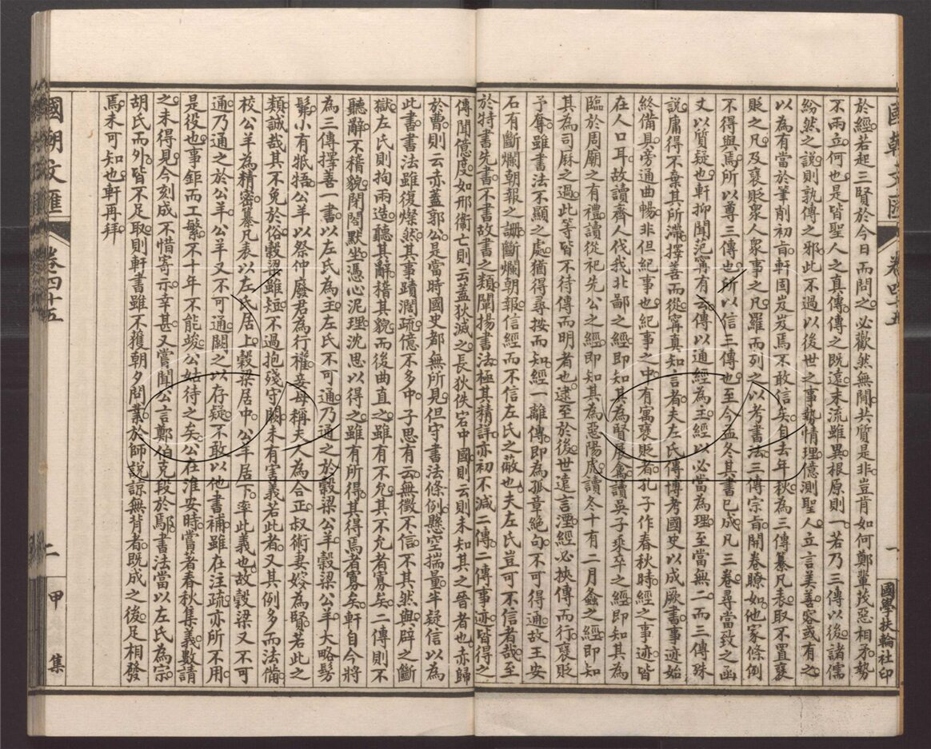 國朝文匯 卷四十五 一 國學扶輪社印
於經若起三賢於今日而問之必歡然無間共質是非豈肯如何鄭輩茂惡相矛勢
不兩立何也是皆聖人之真傳傳之既遠末流雖異根原則一若乃三傳以後諸儒
紛然之談則孰傳之邪此不過以後世之事勢情理億測聖人立言美善容或有之
以為有當於筆削初旨軒固岌岌焉不敢信矣自去年秋為三傳纂凡表取不置褒
貶之凡及褒貶眾人眾事之凡羅而列之以考書法三傳宗旨開卷瞭如他家條例
不得與焉所以尊三傳也所以信三傳也至今孟冬其書已成凡三卷尋當致之函
丈以質疑也軒抑聞范甯有云傳以通經為主經以必當為理至當無二而三傳殊
說庸得不棄其所滯擇善而從甯真知言者夫左氏傳博考國史以成厥書事迹始
終備具旁通曲暢非但紀事也紀事之中有寓褒貶者孔子作春秋時經之事迹皆
在人口耳故讀齊人伐我北鄙之經即知其為賢展禽讀吳子乘卒之經即知其為
臨於周廟之有禮讀從祀先公之經即知其為惡陽虎讀冬十有二月螽之經即知
其為司厤之過此等皆不待傳而明者也逮至於後世遺言湮經必挾傳而行褒貶
予奪雖書法不顯之處猶得尋按而知經一離傳即為孤章絕句不可得通故王安
石有斷爛朝報之譏斷爛朝報信經而不信左氏之蔽也夫左氏豈可不信者哉至
於特書先書不書故書之類闡揚書法極其精詳亦初不減二傳二傳事迹皆得之
傳聞億度如邢衞亡則云蓋狄滅之長狄佚宕中國則云則未知其之晉者也赤歸
於曹則云赤蓋郭公是當時國史都無所見但守書法條例懸空揣量半疑信以為
此書書法雖復燦然其事蹟潤疏億不多中子思有云無徵不信不其然與辟之斷
獄左氏則拘兩造聽其辭稽其貌而後曲直之雖有不允其不允者寡矣二傳則不
聽辭不稽貌閉閤默坐憑心泥理沈思以得之雖有所得其得焉者寡矣軒自今將
為三傳擇善一書以左氏為主左氏不可通乃通之於穀梁公羊穀梁公羊大略髣
髴小有牴牾公羊以祭仲廢君為行權妾母稱夫人為合正叔術妻嫂為賢若此之
類誠哉其不免於俗穀梁雖短不過抱殘守闕未有害義若此者又其例多而法備
校公羊為精密纂凡表以左氏居上穀梁居中公羊居下率此義也故穀梁又不可
通乃通之於公羊公羊又不可通闕之以存疑不敢以他書補雖在注疏亦所不用
是役也事鉅而工繁不十年不能竣公姑待之矣公在淮安時嘗著春秋集義數請
之未得見今刻成不惜寄示幸甚又嘗聞公言鄭伯克段於鄢書法當以左氏為宗
胡氏而外皆不足取則軒書雖不獲朝夕問業於師說諒無背者既成之後足相發
焉未可知也軒再拜
國朝文匯 卷四十五 二 甲集